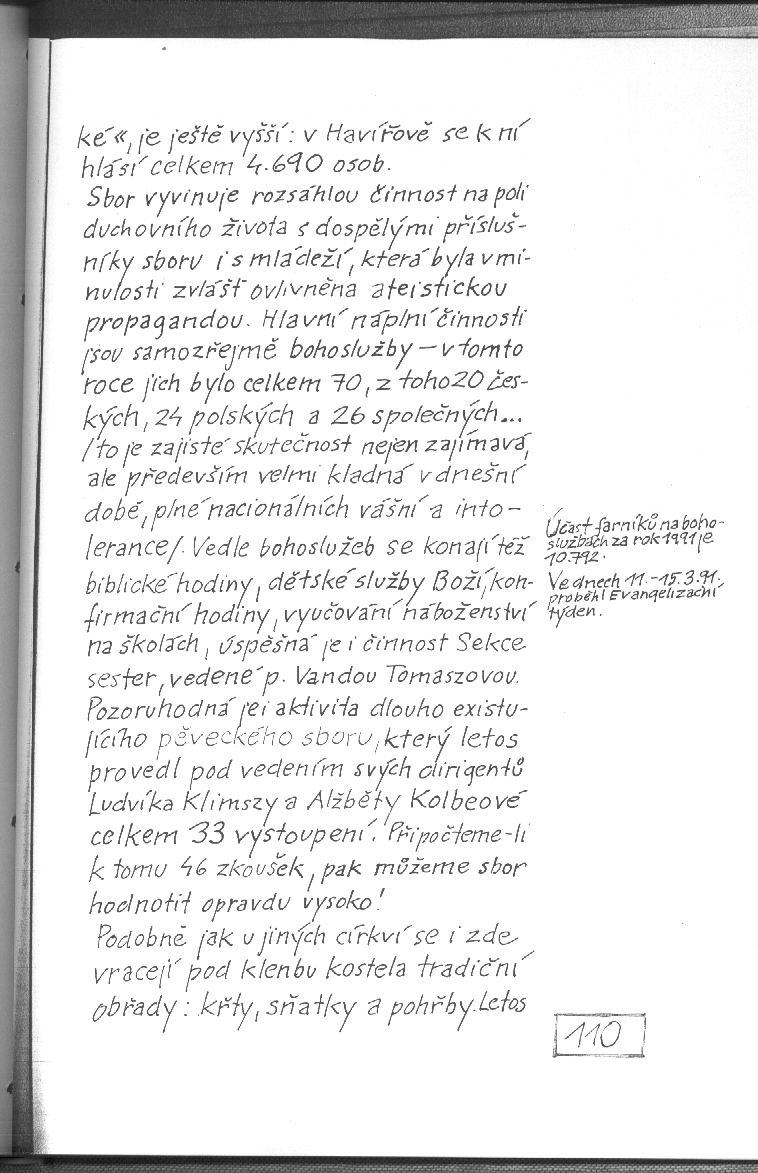 ké«, je ještě vyšší: v Havířově se k ní
hlásí celkem 4.690 osob.
Sbor vyvinuje rozsáhlou činnost na poli
duchovního života s dospělými přísluš-
níky sboru i s mládeží, která byla v mi-
nulosti zvlášť ovlivněna ateistickou
propagandou. Hlavní náplní činnosti
jsou samozřejmě bohoslužby – v tomto
roce jich bylo celkem 70, z toho 20 čes-
kých, 24 polských a 26 společných...
/to je zajisté skutečnost nejen zajímavá,
ale především velmi kladná v dnešní
době, plné nacionálních vášní a into-
lerance/. Vedle bohoslužeb se konají též
biblické hodiny, dětské služby Boží, kon-
firmační hodiny, vyučování náboženství
na školách, úspěšná je i činnost Sekce
sester, vedené p. Vandou Tomaszovou.
Pozoruhodná je i aktivita dlouho existu-
jícího pěveckého sboru, který letos
provedl pod vedením svých dirigentů
Ludvíka Klimszy a Alžběty Kolbeové
celkem 33 vystoupení. Připočteme-li
k tomu 46 zkoušek, pak můžeme sbor
hodnotit opravdu vysoko!
Podobně jak u jiných církví se i zde
vracejí pod klenbu kostela tradiční
obřady: křty, sňatky a pohřby. Letos
Účast farníků na boho-
službách za rok 1991 je
10.792.
Ve dnech 11.-15.3.91.,
proběhl Evangelizační
týden.
110